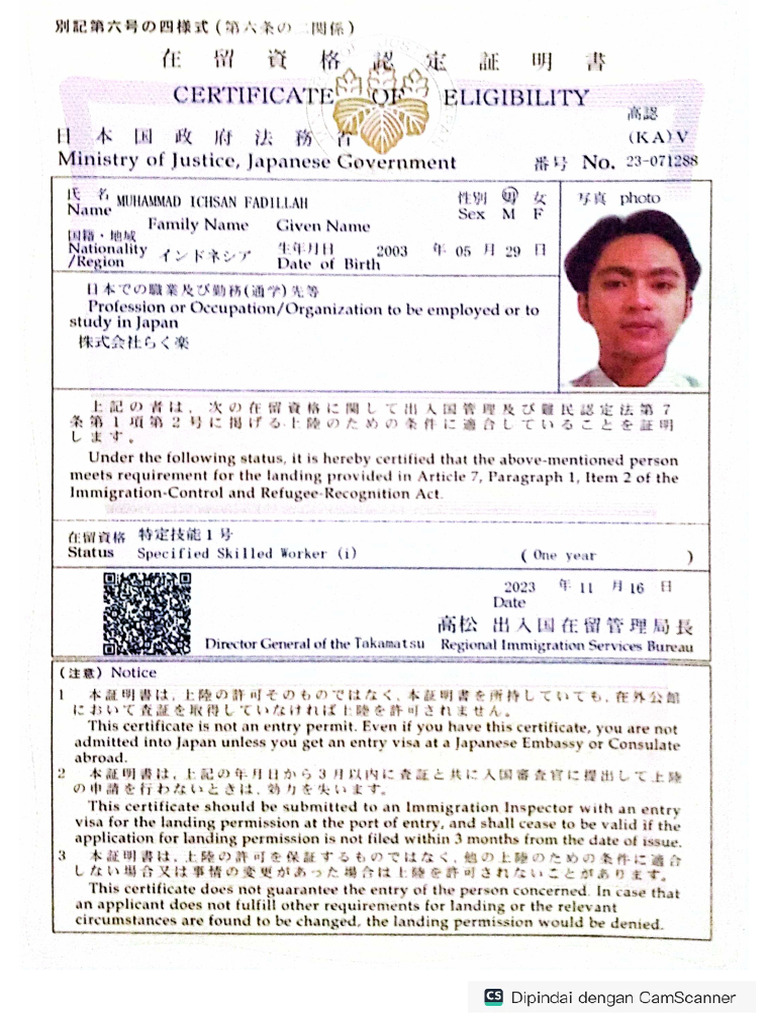 別記第六号の四様式(第六条の二関係)
在留資格認定証明書
CERTIFICATE OF ELIGIBILITY
高認
日本国政府法務省
(KA)V
Ministry of Justice, Japanese Government
番号 No. 23-071288
氏名 MUHAMMAD ICHSAN FADILLAH
Name
Family Name Given Name
性別 男 女
Sex M F
写真 photo
国籍・地域
Nationality インドネシア
/Region
生年月日 2003 年 05 月 29 日
Date of Birth
日本での職業及び勤務(通学)先等
Profession or Occupation/Organization to be employed or to
study in Japan
株式会社らく楽
上記の者は、次の在留資格に関して出入国管理及び難民認定法第7
条第1項第2号に掲げる上陸のための条件に適合していることを証明
します。
Under the following status, it is hereby certified that the above-mentioned person
meets requirement for the landing provided in Article 7, Paragraph 1, Item 2 of the
Immigration-Control and Refugee-Recognition Act.
在留資格 特定技能1号
Status Specified Skilled Worker (i) ( One year )
2023 年 11 月 16 日
Date
高松 出入国在留管理局長
Director General of the Takamatsu Regional Immigration Services Bureau
(注意) Notice
1 本証明書は、上陸の許可そのものではなく、本証明書を所持していても、在外公館
において査証を取得していなければ上陸を許可されません。
This certificate is not an entry permit. Even if you have this certificate, you are not
admitted into Japan unless you get an entry visa at a Japanese Embassy or Consulate
abroad.
2 本証明書は、上記の年月日から3月以内に査証と共に入国審査官に提出して上陸
の申請を行わないときは、効力を失います。
This certificate should be submitted to an Immigration Inspector with an entry
visa for the landing permission at the port of entry, and shall cease to be valid if the
application for landing permission is not filed within 3 months from the date of issue.
3 本証明書は、上陸の許可を保証するものではなく、他の上陸のための条件に適合
しない場合又は事情の変更があった場合は上陸を許可されないことがあります。
This certificate does not guarantee the entry of the person concerned. In case that
an applicant does not fulfill other requirements for landing or the relevant
circumstances are found to be changed, the landing permission would be denied.
CS Dipindai dengan CamScanner